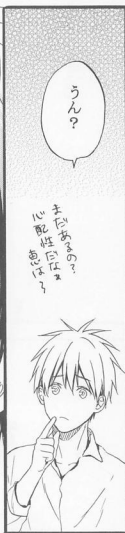 うん?
まだあるの?
心配性だなぁ
恵は〜